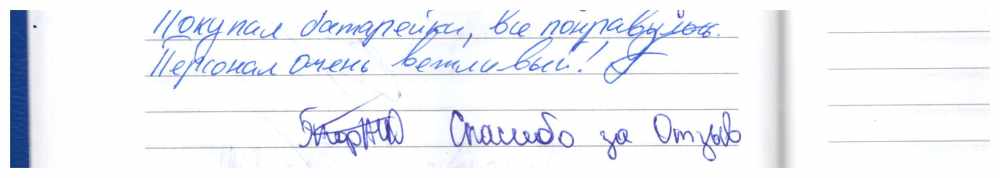 Покупал батарейки, все понравилось.
Персонал очень вежливый!
Спасибо за Отзыв